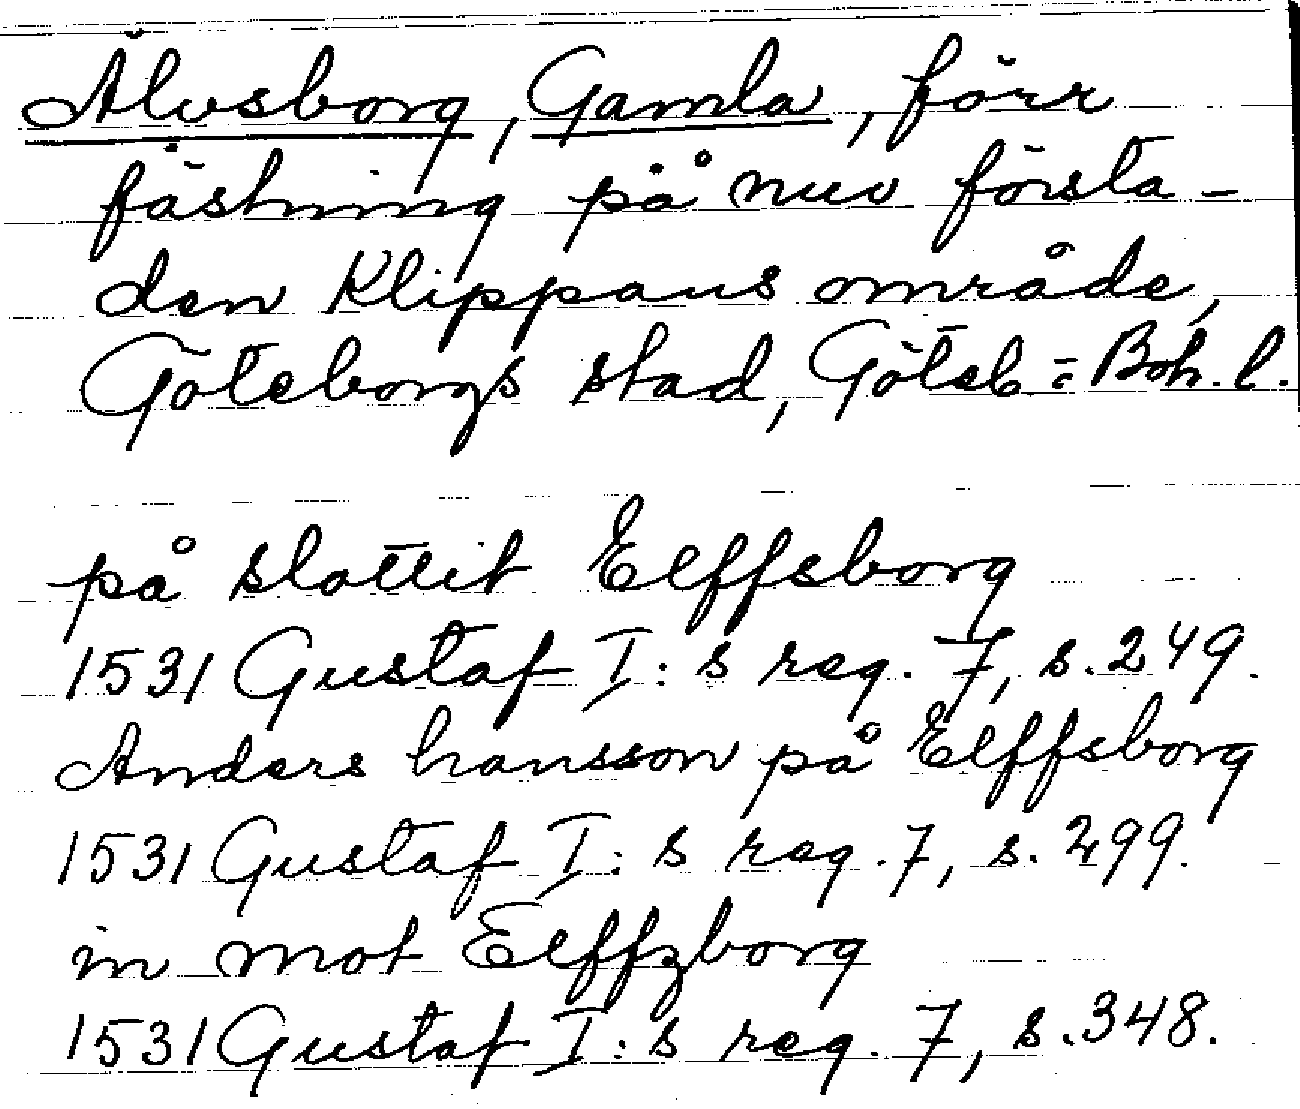 Älvsborg, Gamla, förr
fästning på nuv första-
den Klippans område,
Göteborgs stad, Göteb:s Boh. l.
på slottit Elffsborg
1531 Gustaf I:s reg. 7, s. 249.
Anders hansson på Elffsborg
1531 Gustaf I:s reg. 7, s. 299.
in mot Elffzborg
1531 Gustaf I:s reg. 7, s. 348.